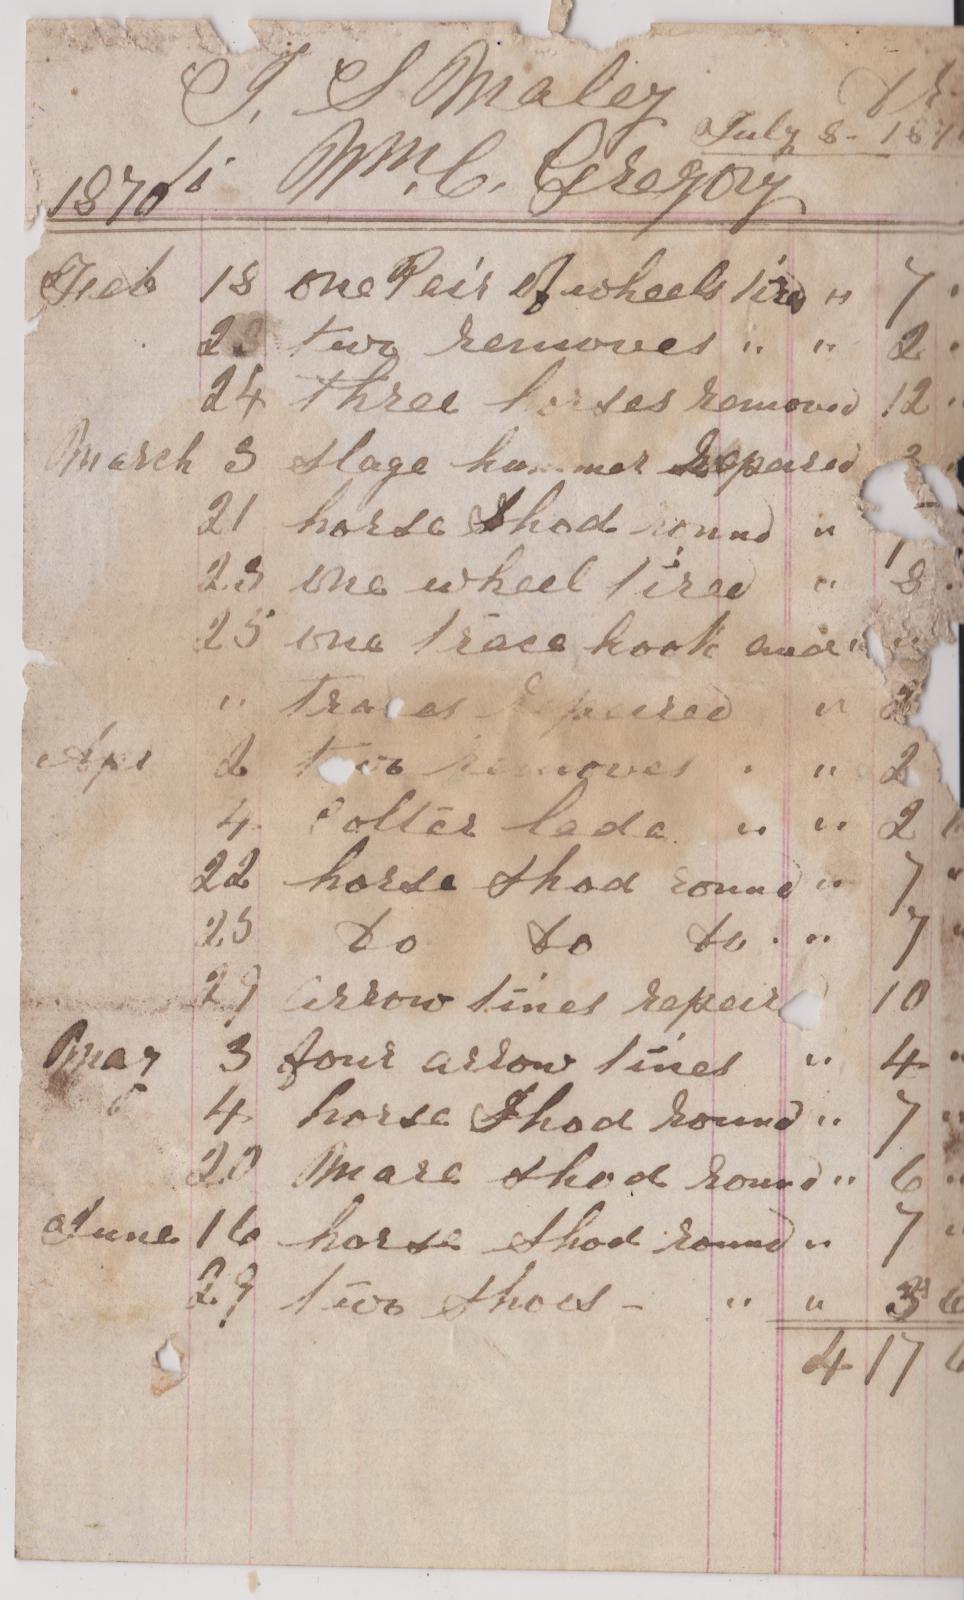 T. S Maley Dr.
July 8- 187
1870 to Wm. C. Gregory
Feb 18 one Pair of wheels tired " 7 "
two removes " " 2 "
24 three horses removed 12 "
March 3 slage hammer repaired
21 horse shod round "
23 one wheel tired " 3
25 one trace hook and " "
" traces repaired "
Apr 2 two removes " " 2
4 Colter lade " " 2
22 horse shod round " 7 "
25 do do do " " 7 "
29 arrow tines repair 10
May 3 four arrow tines " 4 "
4 horse shod round " 7 "
20 Mare shod round " 6 "
June 16 horse shod round " 7 "
29 two shoes - " " 3 6
4 17 6